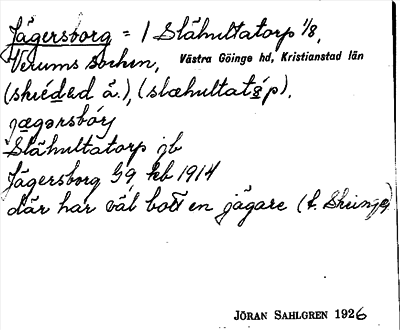 Jägersborg = 1 Slähultatorp 1/8,
Verums socken, Västra Göinge hd, Kristianstad län
(skréded å.), (slæhultatǫ́p).
jægərsbórj
Slähultatorp jb
Jägersborg G9, kb 1914
där har väl bott en jägare (f. Skeinge)
JÖRAN SAHLGREN 1926